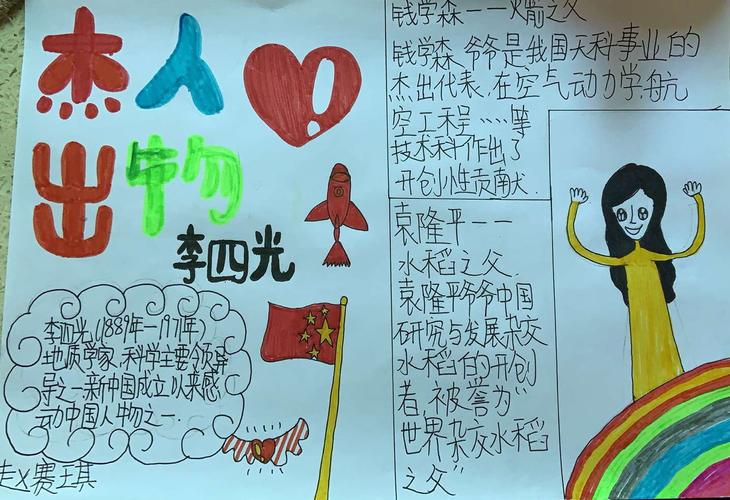 杰人
出物
李四光
李四光(1889年—1971年)
地质学家、科学主要领导
导之一、新中国成立以来感
动中国人物之一.
赵X赛琪
钱学森——火箭之父
钱学森爷爷是我国天科事业的
杰出代表.在空气动力学.航
空工程……等
技术科作出了
开创小性贡献.
袁隆平——
水稻之父.
袁隆平爷爷中国
研究与发展杂交
水稻的开创
者,被誉为“
世界杂交水稻
之父”